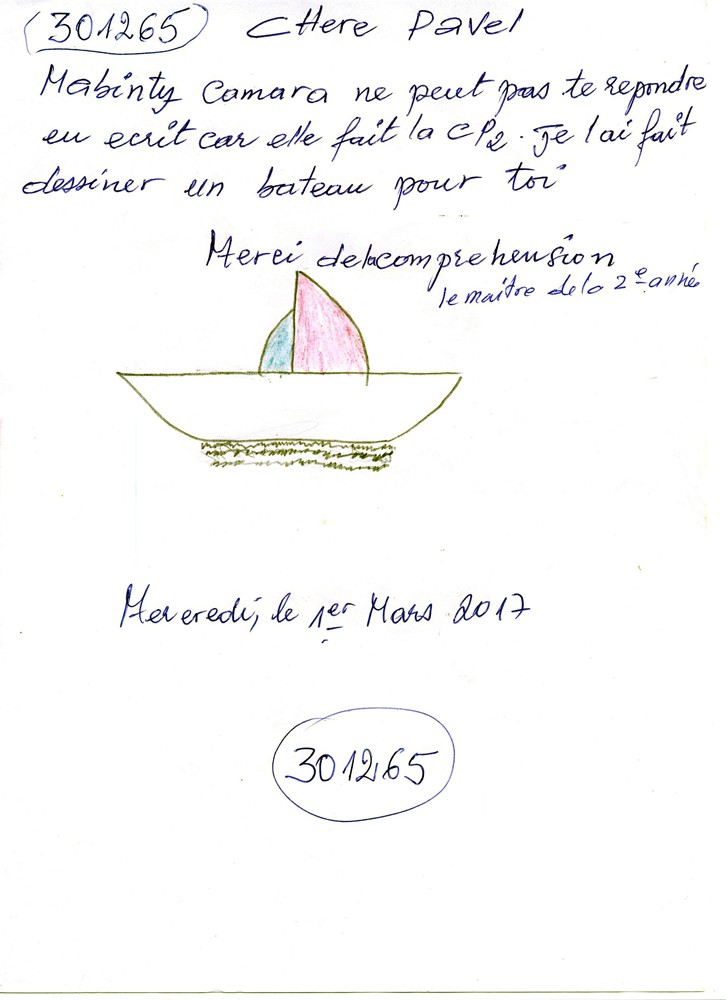 (301265) CHere Pavel
Mabinty Camara ne peut pas te repondre
en ecrit car elle fait la CP2. Je l'ai fait
dessiner un bateau pour toi
Merci de la comprehension
le maître de la 2e année
Mercredi, le 1er Mars 2017
301265